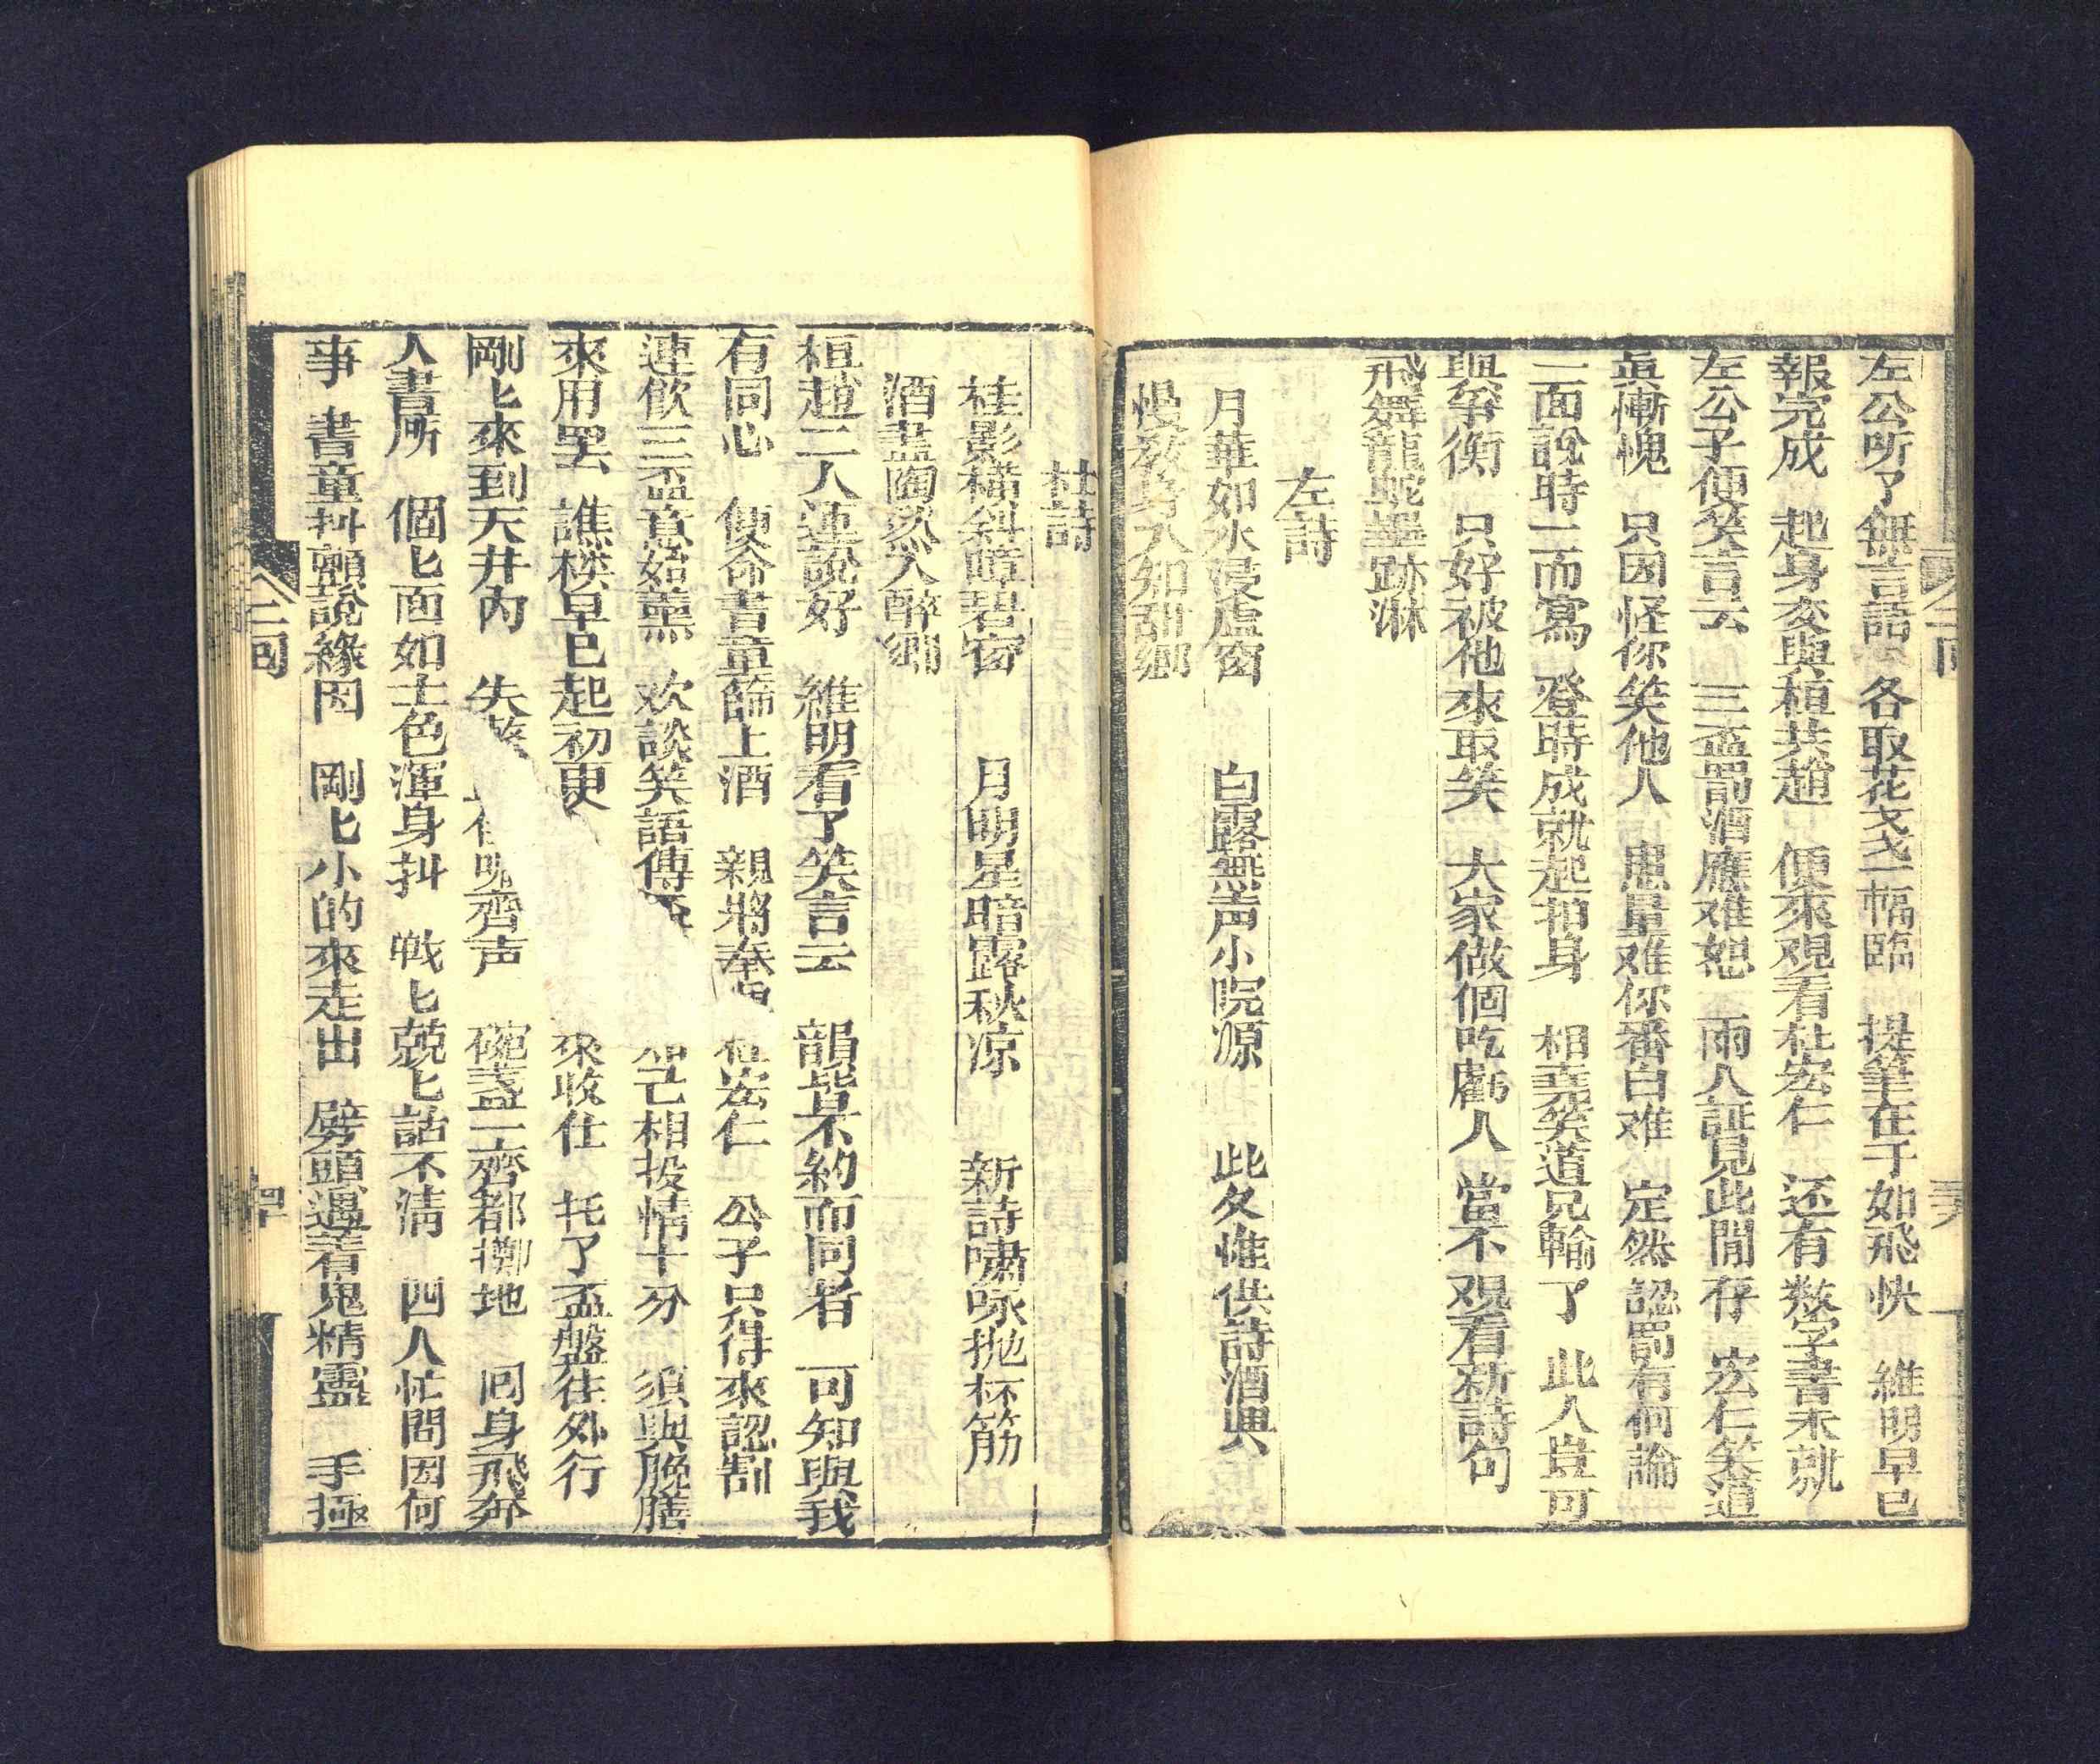 左公听了無言語 各取花笺一幅臨 提筆在手如飛快 維明早已
報完成 起身交與桓共趙 便來覌看杜宏仁 还有数字書未就
左公子便笑言云 三盃罰酒應难恕 兩人証見此間存 宏仁笑道
眞慚愧 只因怪你笑他人 思量难你番自难 定然認罰有何論
一面說時一面寫 登時成就起抽身 相嘉笑道兄輸了 此人豈可
與爭衡 只好被他來取笑 大家做個吃虧人 當不覌看新詩句
飛舞龍蛇墨跡淋
左詩
月華如水浸虛窗 白露無声小院凉 此夕惟供詩酒興
慢教身入知甜鄉
二回
杜詩
桂影橫斜暗碧窗 月明星暗露秋凉 新詩嘯咏抛杯筋
酒盡陶然入醉鄉
桓趙二人連說好 維明看了笑言云 韻皆不約而同者 可知與我
有同心 便命書童篩上酒 親將奉 宏仁 公子只得來認割
連飲三盃意始薰 欢談笑語傳盃 相投情十分 須臾晚膳
來用罢 譙楼早已起初更 來收仕 托了盃盤往外行
剛匕來到天井內 失 齊声 碗盞一齊都擲地 回身飛奔
人書所 個匕面如土色渾身抖 戰匕兢匕話不清 四人忙問因何
事 書童抖顫說緣因 剛匕小的來走出 劈頭遇着鬼精靈 手極
二回
四十